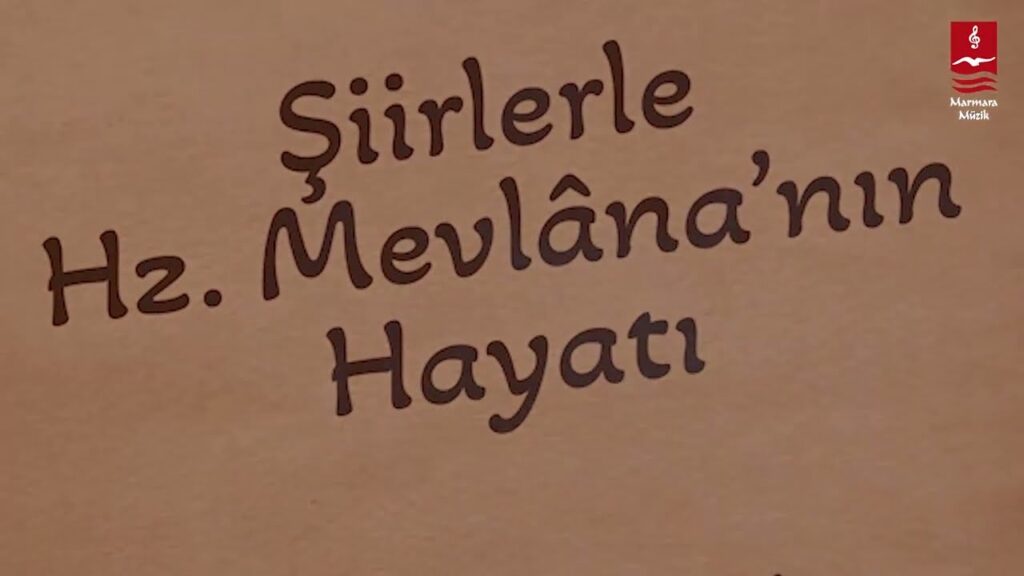 Şiirlerle
Hz. Mevlâna’nın
Hayatı
Marmara
Müzik